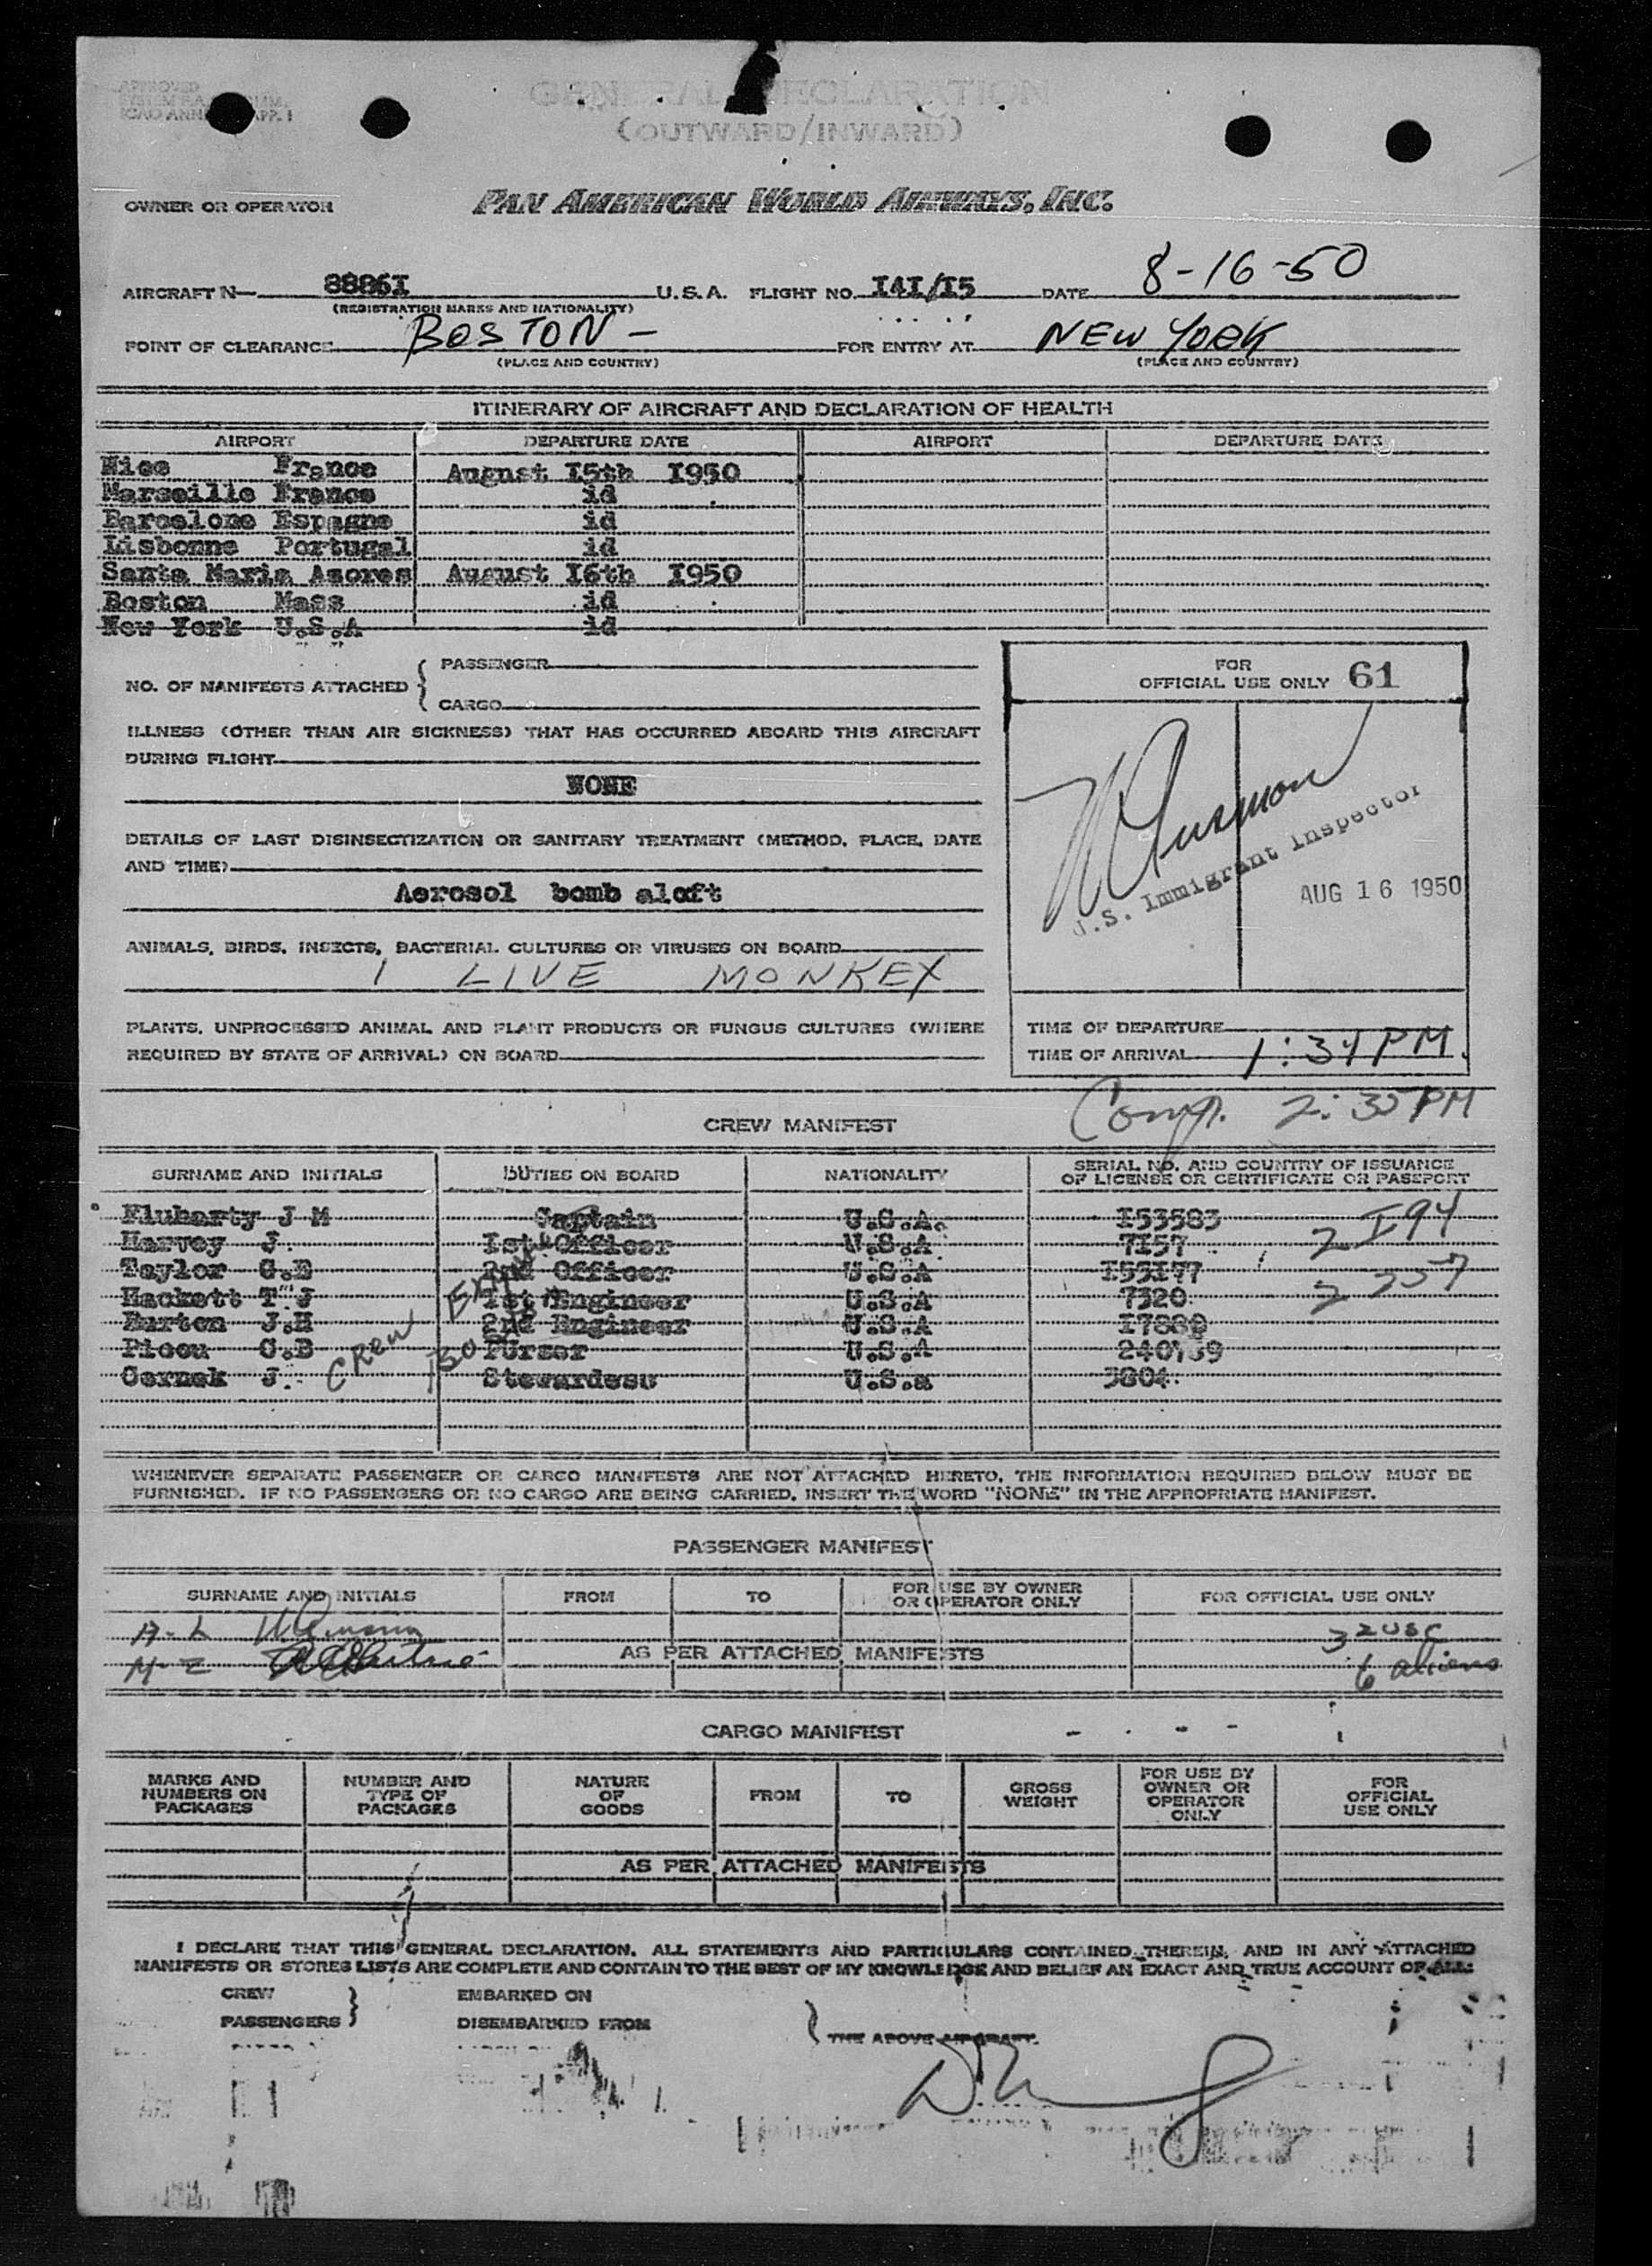 APPROVED
GENERAL DECLARATION
(OUTWARD/INWARD)
OWNER OR OPERATOR PAN AMERICAN WORLD AIRWAYS, INC.
AIRCRAFT N— 8886I U.S.A. FLIGHT NO. I4I/I5 DATE 8-16-50
(REGISTRATION MARKS AND NATIONALITY)
POINT OF CLEARANCE BOSTON - FOR ENTRY AT NEW YORK
(PLACE AND COUNTRY) (PLACE AND COUNTRY)
ITINERARY OF AIRCRAFT AND DECLARATION OF HEALTH
AIRPORT DEPARTURE DATE AIRPORT DEPARTURE DATE
Nice France August I5th I950
Marseille France id
Barcelone Espagne id
Lisbonne Portugal id
Santa Maria Azores August I6th I950
Boston Mass id
New York U.S.A id
NO. OF MANIFESTS ATTACHED { PASSENGER
CARGO
FOR
OFFICIAL USE ONLY 61
ILLNESS (OTHER THAN AIR SICKNESS) THAT HAS OCCURRED ABOARD THIS AIRCRAFT
DURING FLIGHT
NONE
DETAILS OF LAST DISINSECTIZATION OR SANITARY TREATMENT (METHOD, PLACE, DATE
AND TIME)
Aerosol bomb aloft
U.S. Immigrant Inspector
AUG 16 1950
ANIMALS, BIRDS, INSECTS, BACTERIAL CULTURES OR VIRUSES ON BOARD
1 LIVE MONKEY
PLANTS, UNPROCESSED ANIMAL AND PLANT PRODUCTS OR FUNGUS CULTURES (WHERE
REQUIRED BY STATE OF ARRIVAL) ON BOARD
TIME OF DEPARTURE
TIME OF ARRIVAL 1:34 PM
Comp. 2:35 PM
CREW MANIFEST
SURNAME AND INITIALS DUTIES ON BOARD NATIONALITY SERIAL NO. AND COUNTRY OF ISSUANCE
OF LICENSE OR CERTIFICATE OR PASSPORT
Fluharty J M Captain U.S.A. I53583 2 I94
Harvey J. Ist Officer U.S.A 7I57
Taylor G.B 2nd Officer U.S.A I55I77 2 257
Hackett T J Ist Engineer U.S.A 7320
Burton J.H 2nd Engineer U.S.A I7880
Picou C.B PUrser U.S.A
Cernek J. Stewardess U.S.a 3804
CREW
WHENEVER SEPARATE PASSENGER OR CARGO MANIFESTS ARE NOT ATTACHED HERETO, THE INFORMATION REQUIRED BELOW MUST BE
FURNISHED. IF NO PASSENGERS OR NO CARGO ARE BEING CARRIED, INSERT THE WORD "NONE" IN THE APPROPRIATE MANIFEST.
PASSENGER MANIFEST
SURNAME AND INITIALS FROM TO FOR USE BY OWNER
OR OPERATOR ONLY FOR OFFICIAL USE ONLY
A-L 32 USC
M-Z AS PER ATTACHED MANIFESTS 6 aliens
CARGO MANIFEST
MARKS AND
NUMBERS ON
PACKAGES NUMBER AND
TYPE OF
PACKAGES NATURE
OF
GOODS FROM TO GROSS
WEIGHT FOR USE BY
OWNER OR
OPERATOR
ONLY FOR
OFFICIAL
USE ONLY
AS PER ATTACHED MANIFESTS
I DECLARE THAT THIS GENERAL DECLARATION, ALL STATEMENTS AND PARTICULARS CONTAINED THEREIN, AND IN ANY ATTACHED
MANIFESTS OR STORES LISTS ARE COMPLETE AND CONTAIN TO THE BEST OF MY KNOWLEDGE AND BELIEF AN EXACT AND TRUE ACCOUNT OF ALL:
CREW EMBARKED ON
PASSENGERS } DISEMBARKED FROM } THE ABOVE AIRCRAFT.